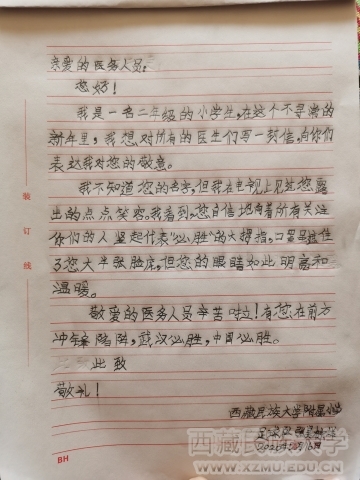 亲爱的医务人员：
您好！
我是一名二年级的小学生，在这个不寻常的
新年里，我想对所有的医生们写一封信，向你们
表达我对您的敬意。
我不知道您的名字，但我在电视上见过您露
出的点点笑容。我看到，您自信地向着所有关注
你们的人竖起代表"必胜"的大拇指，口罩虽遮住
了您大半张脸庞，但您的眼睛如此明亮和
温暖。
敬爱的医务人员辛苦啦！有您在前方
冲锋陷阵，武汉必胜，中国必胜。
此致
敬礼！
西藏民族大学附属小学
2020年2月16日
装订线
BH
西藏民族大学
WWW.XZMU.EDU.CN